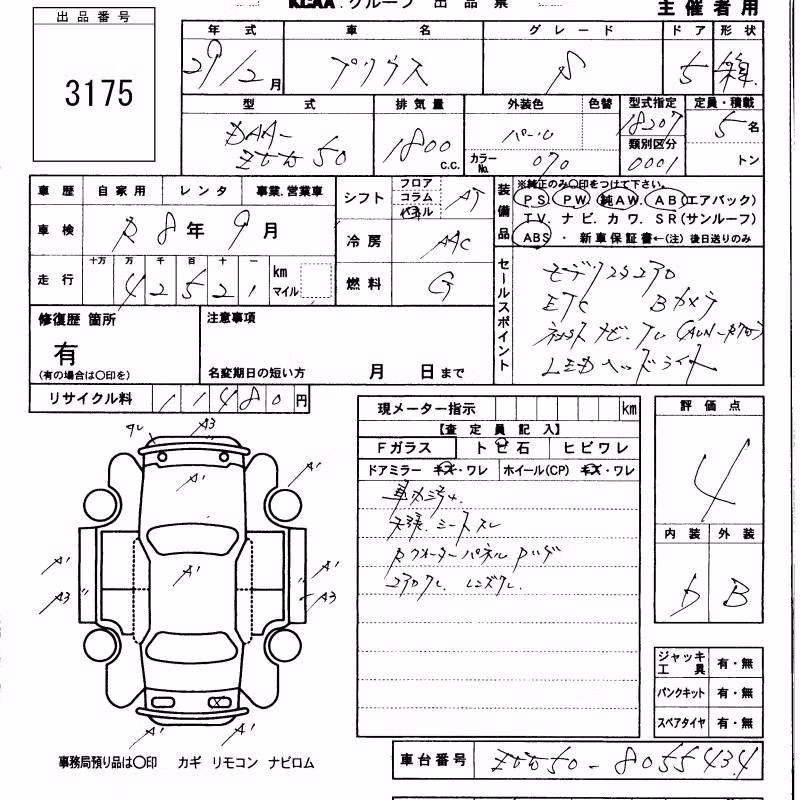 KCAA.グループ 出品票
主催者用
出品番号
3175
年式 車名 グレード ドア 形状
29/2月 プリウス S 5 箱
型式 排気量 外装色 色替 型式指定 定員・積載
DAA-ZVW50 1800c.c. パール 18207 5名
カラーNo. 070 類別区分 0001 トン
車歴 自家用 レンタ 事業.営業車
シフト フロア コラム パネル AT
車検 R8年9月
冷房 AAC
走行 十万 万 千 百 十 一 km マイル
42521
燃料 G
装備品
※純正のみ○印をつけて下さい。
PS. PW. 純AW. AB(エアバック)
TV. ナビ. カワ. SR(サンルーフ)
ABS ・ 新車保証書←(注)後日送りのみ
セールスポイント
ETC Bカメラ
LEDヘッドライト
修復歴 箇所
有
(有の場合は○印を)
注意事項
名変期日の短い方 月 日まで
リサイクル料 11480円
現メーター指示 km
【査定員記入】
Fガラス トビ石 ヒビワレ
ドアミラー キズ・ワレ ホイール(CP) キズ・ワレ
天張、シートスレ
Rクォーターパネル
評価点
4
内装 外装
b B
A3
A'
A'
A'
A'
A'
A3
A3
A'
A'
ジャッキ工具 有・無
パンクキット 有・無
スペアタイヤ 有・無
事務局預り品は○印 カギ リモコン ナビロム
車台番号 ZVW50-8055434